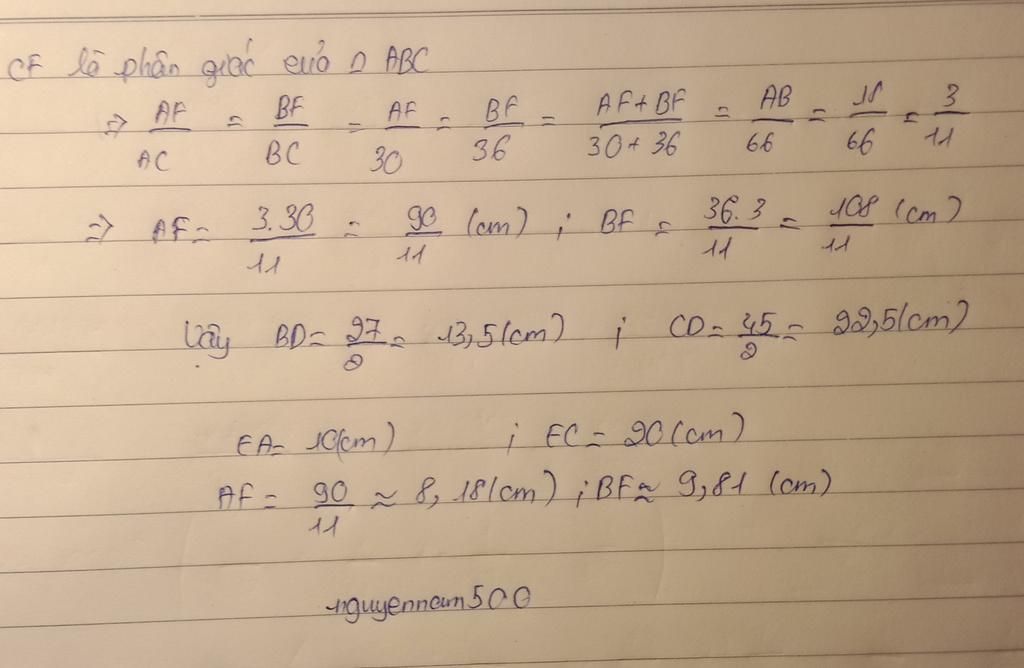 CF là phân giác của △ ABC
⇒ AF/AC = BF/BC = AF/30 = BF/36 = AF+BF/30+36 = AB/66 = 18/66 = 3/11
⇒ AF = 3.30/11 = 90/11 (cm) ; BF = 36.3/11 = 108/11 (cm)
Vậy BD = 27/2 = 13,5(cm) ; CD = 45/2 = 22,5(cm)
EA = 10(cm) ; EC = 20(cm)
AF = 90/11 ≈ 8,18(cm) ; BF ≈ 9,81 (cm)
nguyennam500